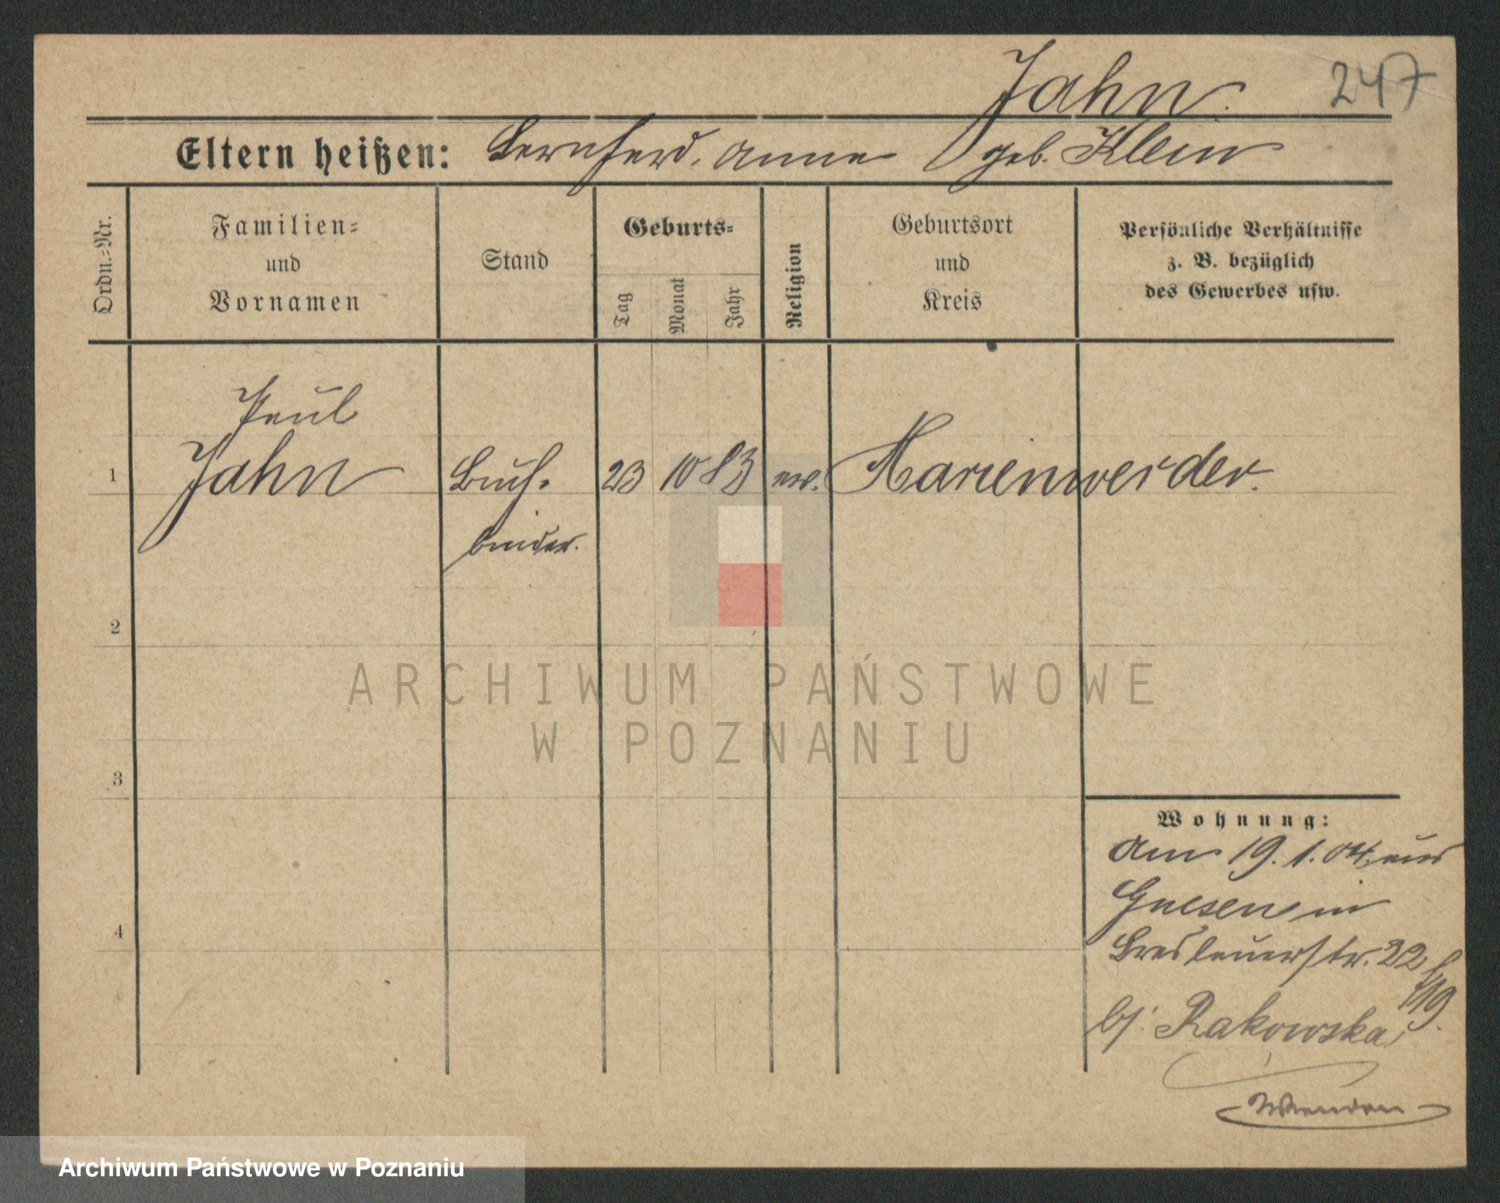 Jahn.
247
Eltern heißen: Bernhard, Anna geb. Klein
Ordn.-Nr.
Familien-
und
Vornamen
Stand
Geburts-
Tag
Monat
Jahr
Religion
Geburtsort
und
Kreis
Persönliche Verhältnisse
z. B. bezüglich
des Gewerbes usw.
Paul
1 Jahn Buch- 23 10 83 ev. Marienwerder.
binder.
2
ARCHIWUM PAŃSTWOWE
W POZNANIU
3
Wohnung:
Am 19.1.04. aus
Gnesen in
4
Breslauerstr. 22
bj. Rakowska
Wenden
Archiwum Państwowe w Poznaniu